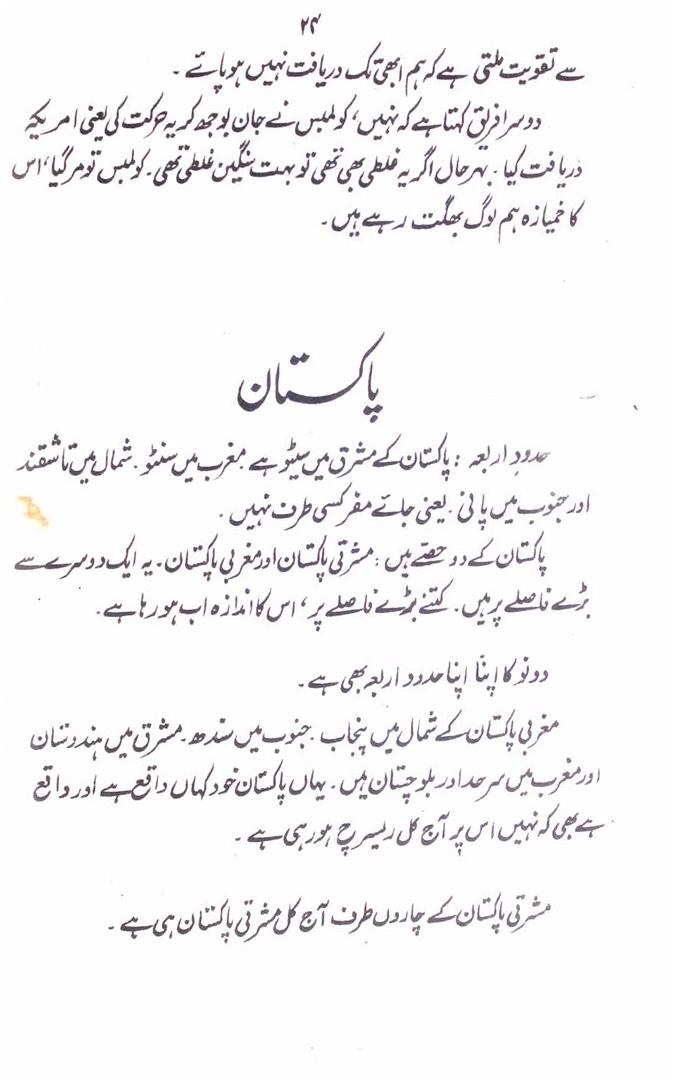 ۲۴
سے تقویت ملتی ہے کہ ہم ابھی تک دریافت نہیں ہو پائے ۔
دوسرا فریق کہتا ہے کہ نہیں، کولمبس نے جان بوجھ کر یہ حرکت کی یعنی امریکہ
دریافت کیا ۔ بہر حال اگر یہ غلطی بھی تھی تو بہت سنگین غلطی تھی ۔ کولمبس تو مر گیا، اس
کا خمیازہ ہم لوگ بھگت رہے ہیں ۔
پاکستان
حدودِ اربعہ : پاکستان کے مشرق میں سیٹو ہے مغرب میں سنٹو ۔ شمال میں تاشقند
اور جنوب میں پانی ۔ یعنی جائے مفر کسی طرف نہیں ۔
پاکستان کے دو حصّے ہیں : مشرقی پاکستان اور مغربی پاکستان ۔ یہ ایک دوسرے سے
بڑے فاصلے پر ہیں ۔ کتنے بڑے فاصلے پر، اس کا اندازہ اب ہو رہا ہے ۔
دونو کا اپنا اپنا حدود اربعہ بھی ہے ۔
مغربی پاکستان کے شمال میں پنجاب ۔ جنوب میں سندھ ۔ مشرق میں ہندوستان
اور مغرب میں سرحد اور بلوچستان ہیں ۔ یہاں پاکستان خود کہاں واقع ہے اور واقع
ہے بھی کہ نہیں اس پر آج کل ریسرچ ہو رہی ہے ۔
مشرقی پاکستان کے چاروں طرف آج کل مشرقی پاکستان ہی ہے ۔